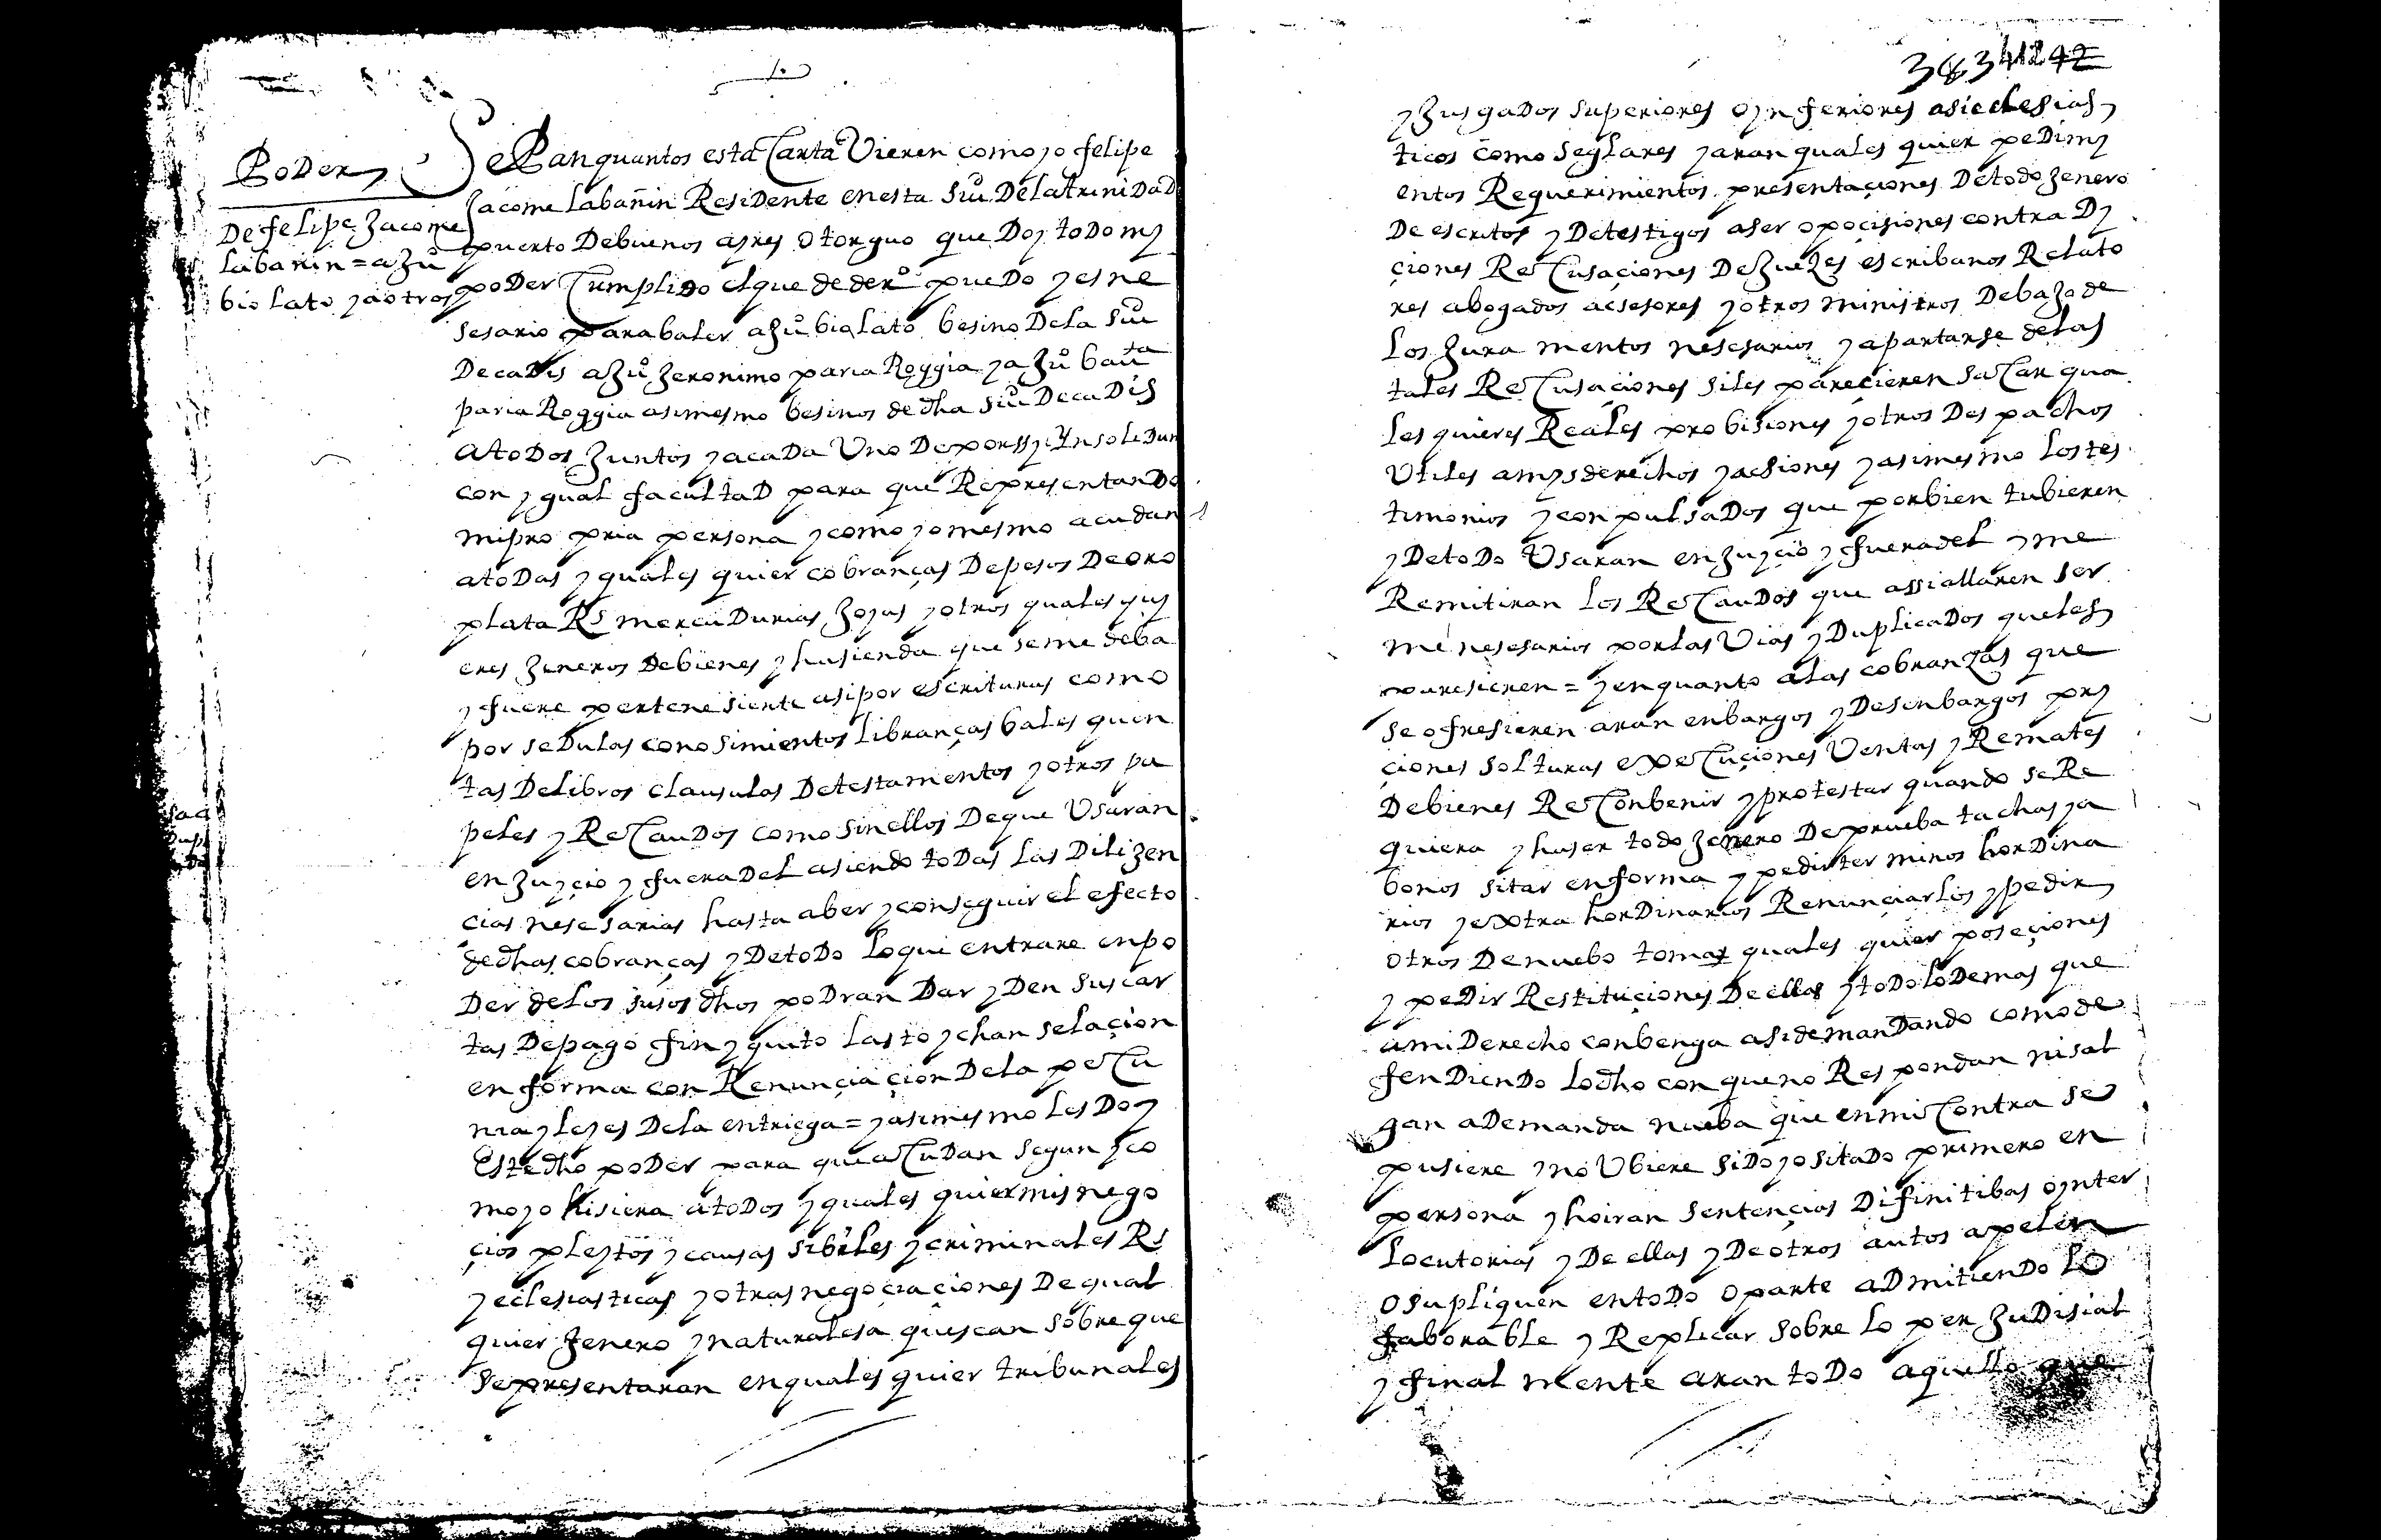 Poder
De felipe Jacome
labañin = a Juº
bio lato y a otros
Sepan quantos esta Carta Vieren como yo felipe
Jacome labañin Residente en esta Siu de la trinidad
puerto de buenos ayres otorguo que Doy todo my
poder Cumplido el que de derº puedo y es ne
sesario para baler a Juº bialato besino De la siu
De cadis a Juº Jeronimo paria Roggia y a Juº bauta
paria Roggia asimesmo besinos de dha siu De cadis
a todos Juntos y a cada Uno De por ssy Ynsolidun
con ygual facultad para que Representando
mi pro pria persona y como yo mesmo acudan
a todas y quales quier cobranças De pesos De oro
plata Rs mercadurias Joyas y otros quales quy
eres Jeneros de bienes y hasienda que se me deba
y fuere pertenesiente asi por escrituras como
por sedulas conosimientos libranças bales quen
tas De libros clausulas De testamentos y otros pa
peles y ReCaudos como sin ellos De que Usaran
en Juyçio y fuera Del asiendo todas las Dilizen
cias nesesarias hasta aber y conseguir el efecto
de dhas cobranças y De todo lo que entrare en po
Der de los susos dhos podran Dar y Den sus car
tas De pago fin y quito lasto y chanselaçion
en forma con Renunçiaçion De la peCu
nia y leyes De la entriega = y asimesmo les Doy
Este dho poder para que aCudan segun y co
mo yo hisiera a todos y quales quier mis nego
çios pleytos y causas sibiles y criminales Rs
y eclesiasticas y otras negoçiaçiones De qual
quier Jenero y naturalesa que sean sobre que
se presentaran en quales quier tribunales
383 412 42
y Jusgados superiores o ynferiores asi eclesias
ticos como seglares y aran quales quier pedimy
entos Requerimientos presentaçiones De todo Jenero
De escritos y De testigos aser opoçisiones contra Dy
çiones ReCusaçiones De Juezes escribanos Relato
res abogados acsesores y otros ministros Debajo de
los Jura mentos nesesarios y apartarse de las
tales ReCusaçiones si les pareçieren saCar qua
les quieres Reales probisiones y otros Des pachos
Utiles a mys derechos y acsiones y asimesmo los tes
timonios y conpulsados que por bien tubieren
y De todo Usaran en Juyçio y fuera del y me
Remitiran los ReCaudos que assi allaren ser
me nesesarios por las Vias y Duplicados que les
paresieren = y en quanto a las cobranzas que
se ofresieren aran enbargos y Desenbargos pry
çiones solturas exeCuçiones Ventas y Remates
De bienes ReConbenir y protestar quando se Re
quiera y haser todo Jenero De prueba tachas y a
bonos sitar en forma y pedir terminos hordina
rios y extra hordinarios Renunçiarlos y pedir
otros De nuebo tomar quales quier poseçiones
y pedir Restituçiones De ellas y todo lo Demas que
a mi Derecho conbenga asi demandando como de
fendiendo lo dho con que no Respondan ni sal
gan a Demanda nueba que en mi Contra se
pusiere y no Ubiere sido yo sitado primero en
persona y hoiran sentençias Difinitibas o ynter
locutorias y De ellas y De otros autos apelen
o supliquen en todo o parte admitiendo lo
faborable y Replicar sobre lo per Judisial
y final mente aran todo aquello que